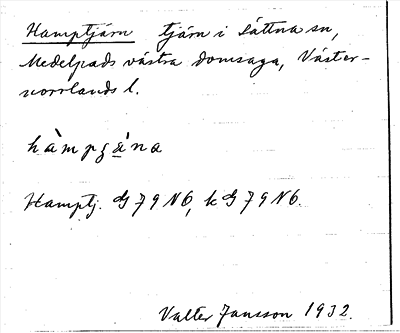 Hamptjärn tjärn i Sättna sn,
Medelpads västra domsaga, Väster-
norrlands l.
hàmpʒä̀na
Hamptj. G 79 N6, k G 79 N6.
Valter Jansson 1932.